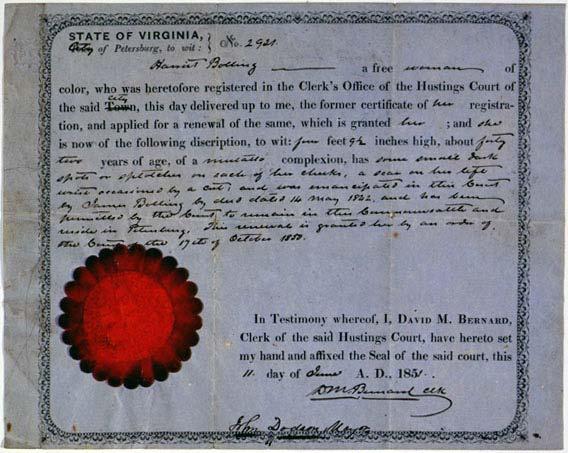 STATE OF VIRGINIA,
City of Petersburg, to wit: No. 2921
Harriet Bolling a free woman of
color, who was heretofore registered in the Clerk's Office of the Hustings Court of
the said City Town, this day delivered up to me, the former certificate of her registra-
tion, and applied for a renewal of the same, which is granted her ; and she
is now of the following discription, to wit: four feet 9½ inches high, about forty
two years of age, of a mulatto complexion, has some small dark
spots or splotches on each of her cheeks, a scar on her left
wrist occasioned by a cut, and was emancipated in this Court
by James Bolling by deed dated 14 May 1842, and has been
permitted by the Court to remain in this Commonwealth and
reside in Petersburg. This renewal is granted her by an order of
the Court of the 17th of October 1850.
In Testimony whereof, I, DAVID M. BERNARD,
Clerk of the said Hustings Court, have hereto set
my hand and affixed the Seal of the said court, this
11 day of June A. D., 1851.
D M Bernard clk
John Dodson Mayor